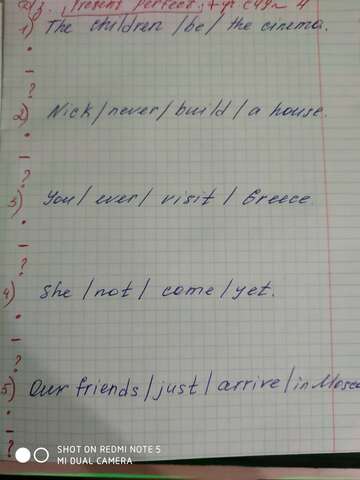 Present Perfect.
1) The children / be / the cinema.
•
–
?
2) Nick / never / build / a house.
•
–
?
3) You / ever / visit / Greece.
•
–
?
4) She / not / come / yet.
•
–
?
5) Our friends / just / arrive / in Mosco
•
–
?
SHOT ON REDMI NOTE 5
MI DUAL CAMERA